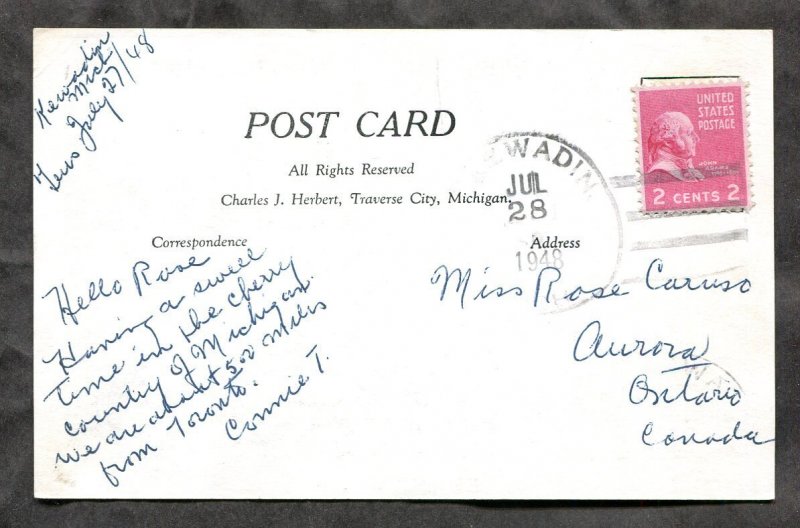 Kewadin
Mich
Thurs July 27/48
POST CARD
All Rights Reserved
Charles J. Herbert, Traverse City, Michigan.
Correspondence
Address
KEWADIN
JUL
28
1948
UNITED
STATES
POSTAGE
JOHN
ADAMS
2 CENTS 2
Hello Rose
Having a swell
time in the cherry
country of Michigan.
We are about 500 miles
from Toronto.
Connie T.
Miss Rose Caruso
Aurora
Ontario
Canada